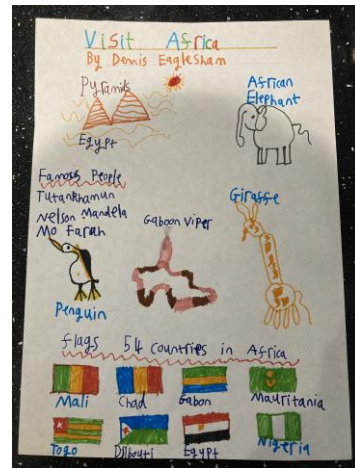 Visit Africa
By Dennis Eaglesham
Pyramids
African
Elephant
Egypt
Famous People
Tutankhamun
Nelson Mandela
Mo Farah
Gaboon Viper
Giraffe
Penguin
flags 54 countries in Africa
Mali Chad Gabon Mauritania
Togo Djibouti Egypt Nigeria